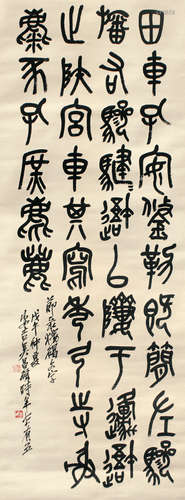 田車孔安鋚勒既簡左驂
旛右驂騝避以隮于邍避
止陜宮車其寫秀弓寺射
麋豕孔庶麀鹿
獵碣字
戊午仲夏
吳昌碩時年七十有五